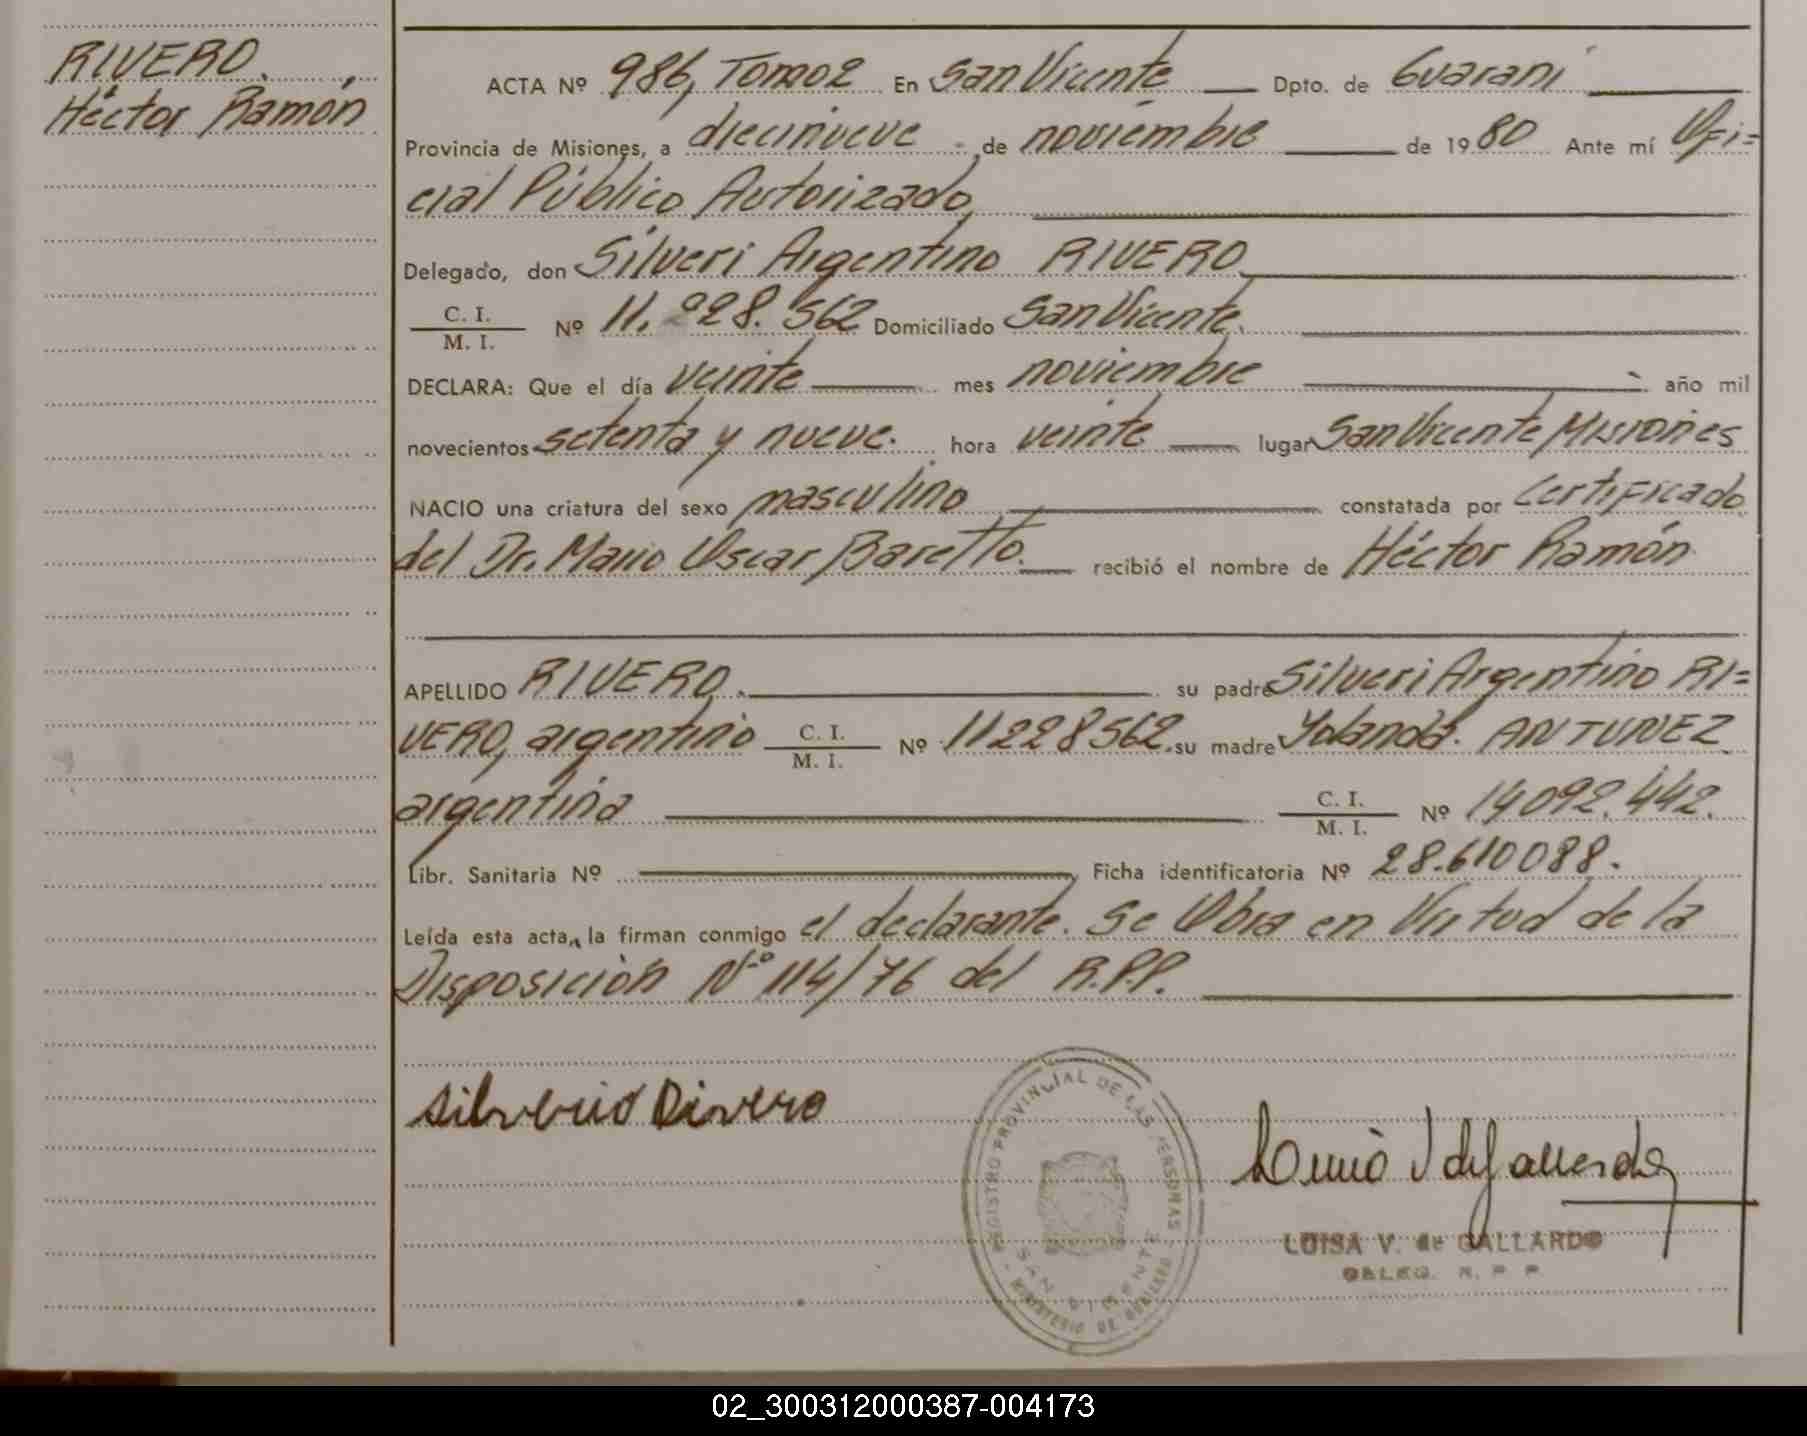 RIVERO.
Héctor Ramón
ACTA Nº 986, Tomo 2 En San Vicente Dpto. de Guaraní
Provincia de Misiones, a diecinueve de noviembre de 1980 Ante mí Ofi=
cial Público Autorizado,
Delegado, don Silveri Argentino RIVERO
C. I.
M. I. Nº 11.228.562 Domiciliado San Vicente.
DECLARA: Que el día veinte mes noviembre año mil
novecientos setenta y nueve. hora veinte lugar San Vicente Misiones
NACIO una criatura del sexo masculino constatada por Certificado
del Dr. Mario Oscar Baretto. recibió el nombre de Héctor Ramón
APELLIDO RIVERO. su padre Silveri Argentino RI=
VERO, argentino C. I.
M. I. Nº 11228562. su madre Yolanda. ANTUNEZ
argentina C. I.
M. I. Nº 14092.442.
Libr. Sanitaria Nº Ficha identificatoria Nº 28.610088.
Leída esta acta, la firman conmigo el declarante. Se Obra en Virtud de la
Disposición Nº 114/76 del R.P.P.
Silverio Rivero
REGISTRO PROVINCIAL DE LAS PERSONAS
SAN VICENTE
MINISTERIO DE GOBIERNO
LUISA V. de GALLARDO
DELEG. R. P. P.
02_300312000387-004173